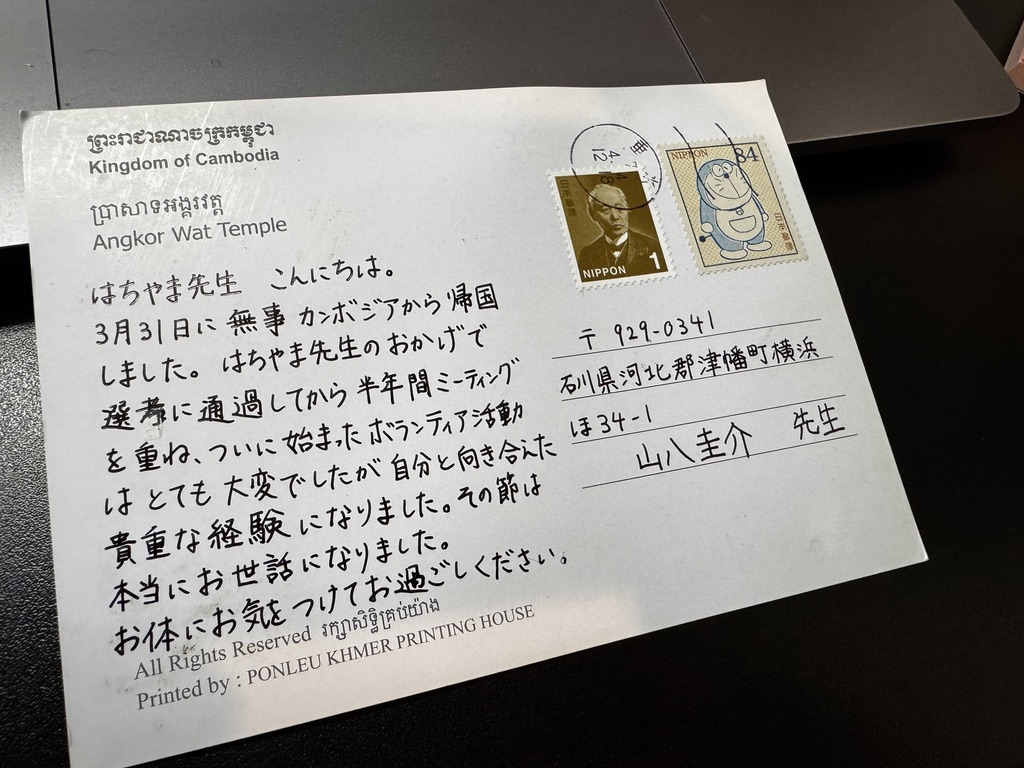 ព្រះរាជាណាចក្រកម្ពុជា
Kingdom of Cambodia
ប្រាសាទអង្គរវត្ត
Angkor Wat Temple
はちやま先生 こんにちは。
3月31日に 無事 カンボジアから 帰国
しました。 はちやま先生の おかげで
選考に 通過してから 半年間ミーティング
を 重ね、ついに 始まった ボランティア活動
は とても 大変でしたが 自分と向き合えた
貴重な 経験 になりました。その節は
本当に お世話になりました。
お体に お気を つけて お過ごしください。
All Rights Reserved រក្សាសិទ្ធិគ្រប់យ៉ាង
Printed by : PONLEU KHMER PRINTING HOUSE
日本郵便
NIPPON 1
NIPPON 84
日本郵便
4
18
12
〒 929-0341
石川県河北郡津幡町横浜
ほ34-1
山八圭介 先生